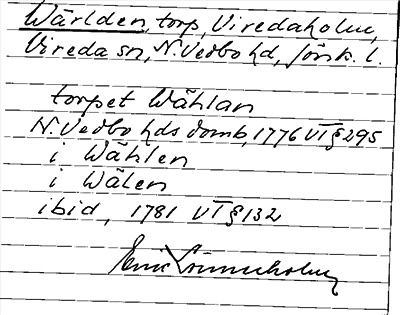 Wärlden, torp, Viredaholm,
Vireda sn, N. Vedbo hd, Jönk. l.
torpet Wählan
N. Vedbo hds domb, 1776 VI § 295
i Wählen
i Wälen
ibid, 1781 VI § 132
Eric Linnerholm